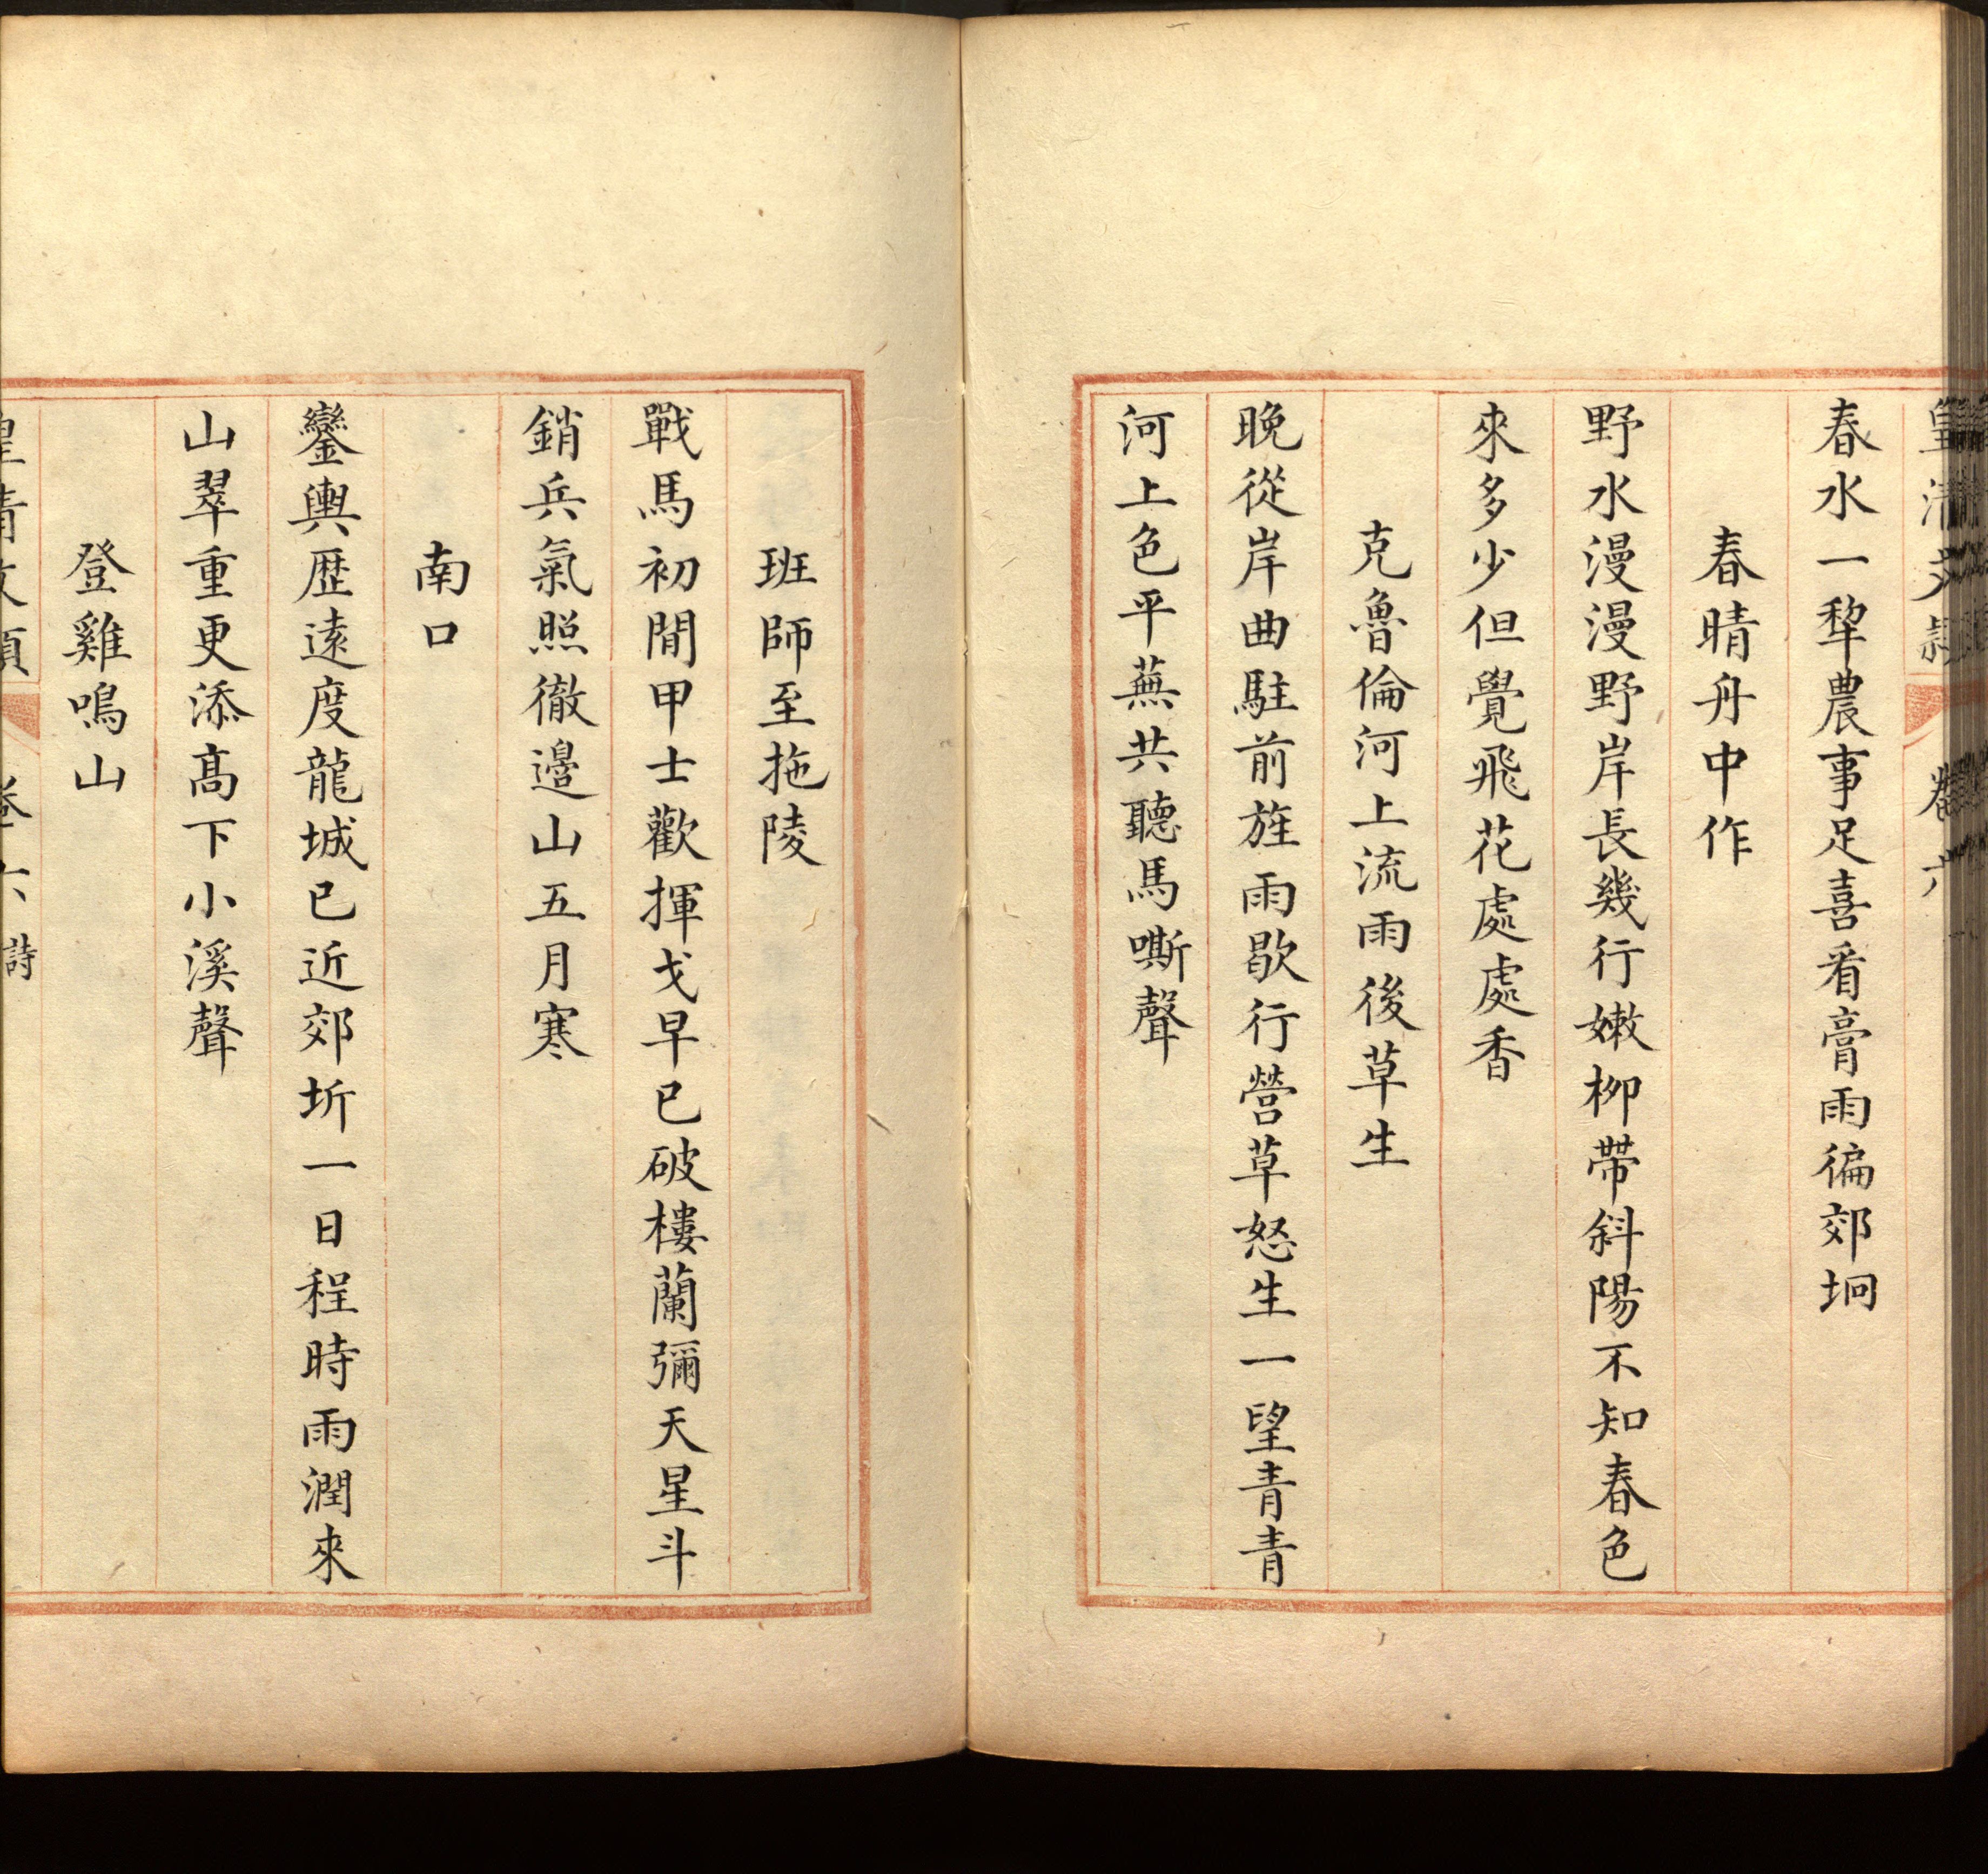 皇清文穎 卷六
春水一犂農事足喜看膏雨徧郊坰
春晴舟中作
野水漫漫野岸長幾行嫩柳帶斜陽不知春色
來多少但覺飛花處處香
克魯倫河上流雨後草生
晚從岸曲駐前旌雨歇行營草怒生一望青青
河上色平蕪共聽馬嘶聲
班師至拖陵
戰馬初閒甲士歡揮戈早已破樓蘭彌天星斗
銷兵氣照徹邊山五月寒
南口
鑾輿歷遠度龍城已近郊圻一日程時雨潤來
山翠重更添高下小溪聲
登雞鳴山
皇清文穎 卷六 詩